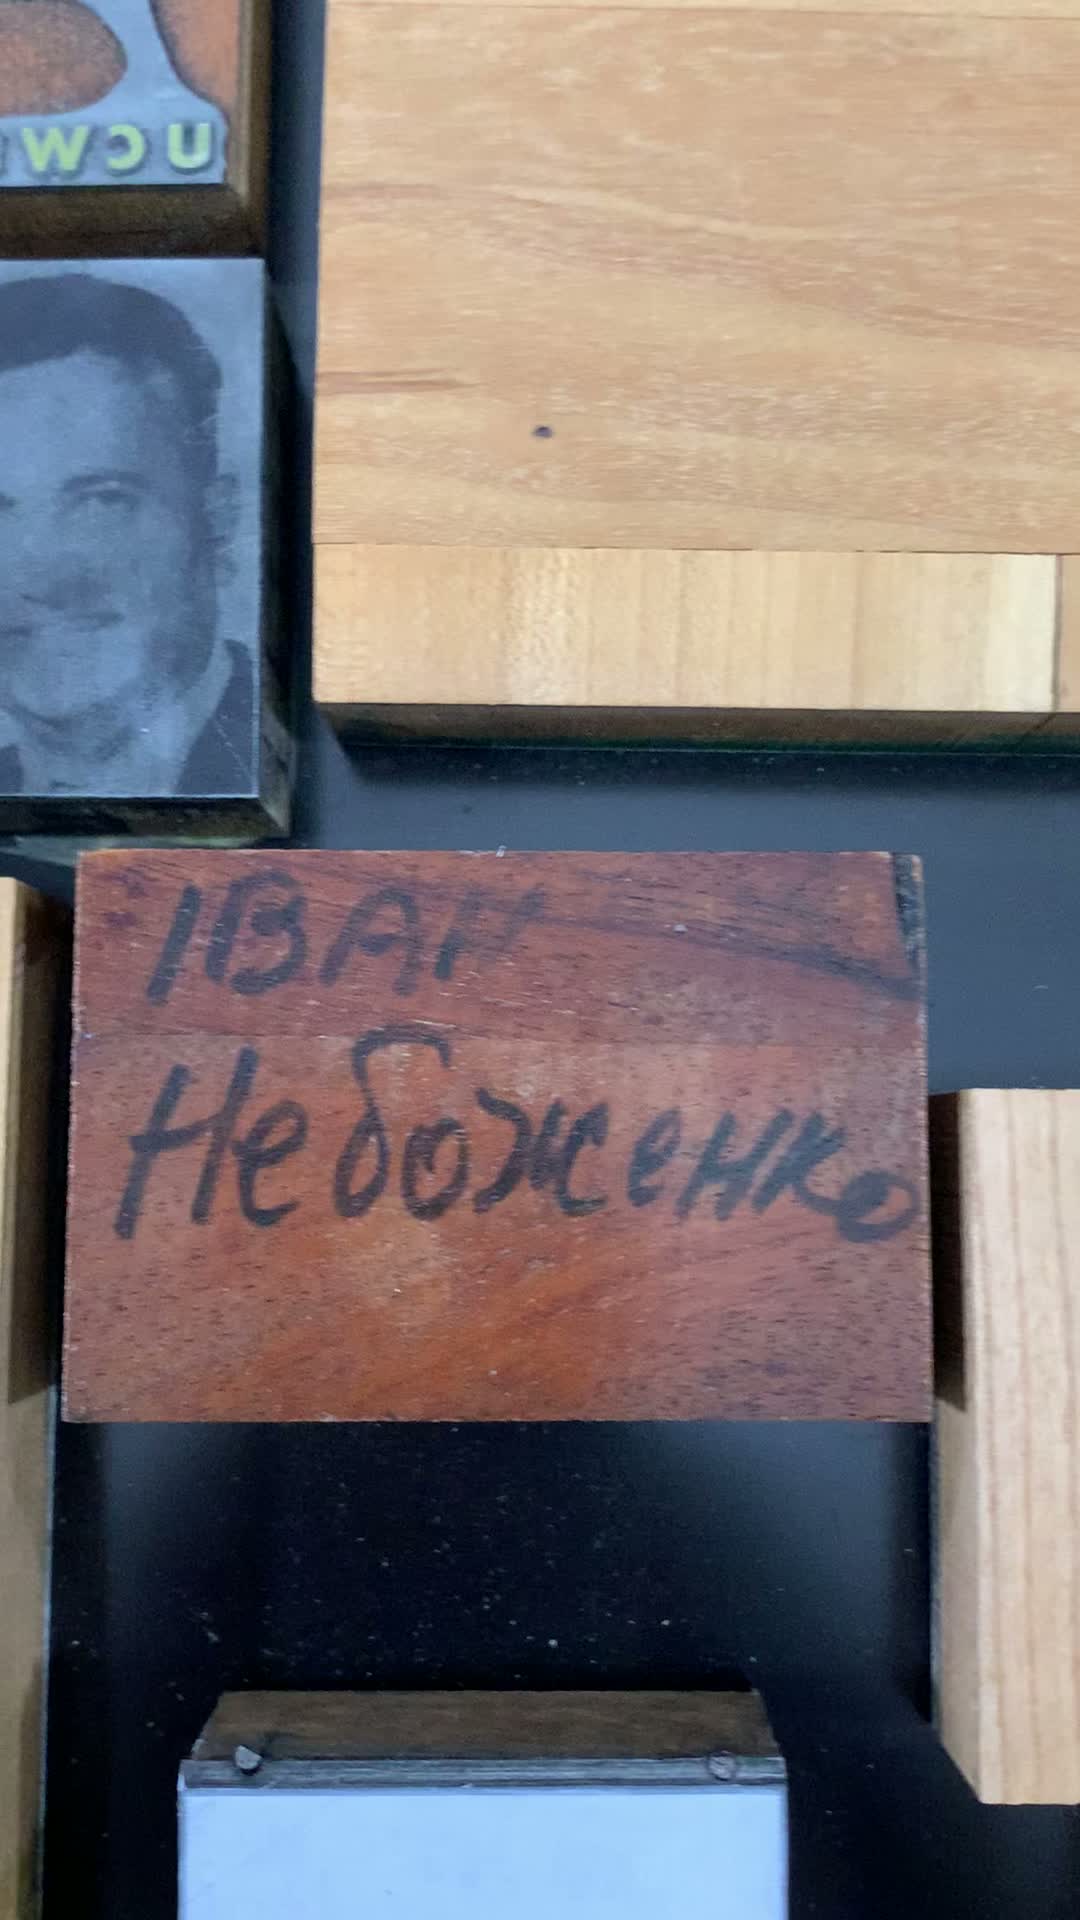 UCW
ІВАН
Небоженко